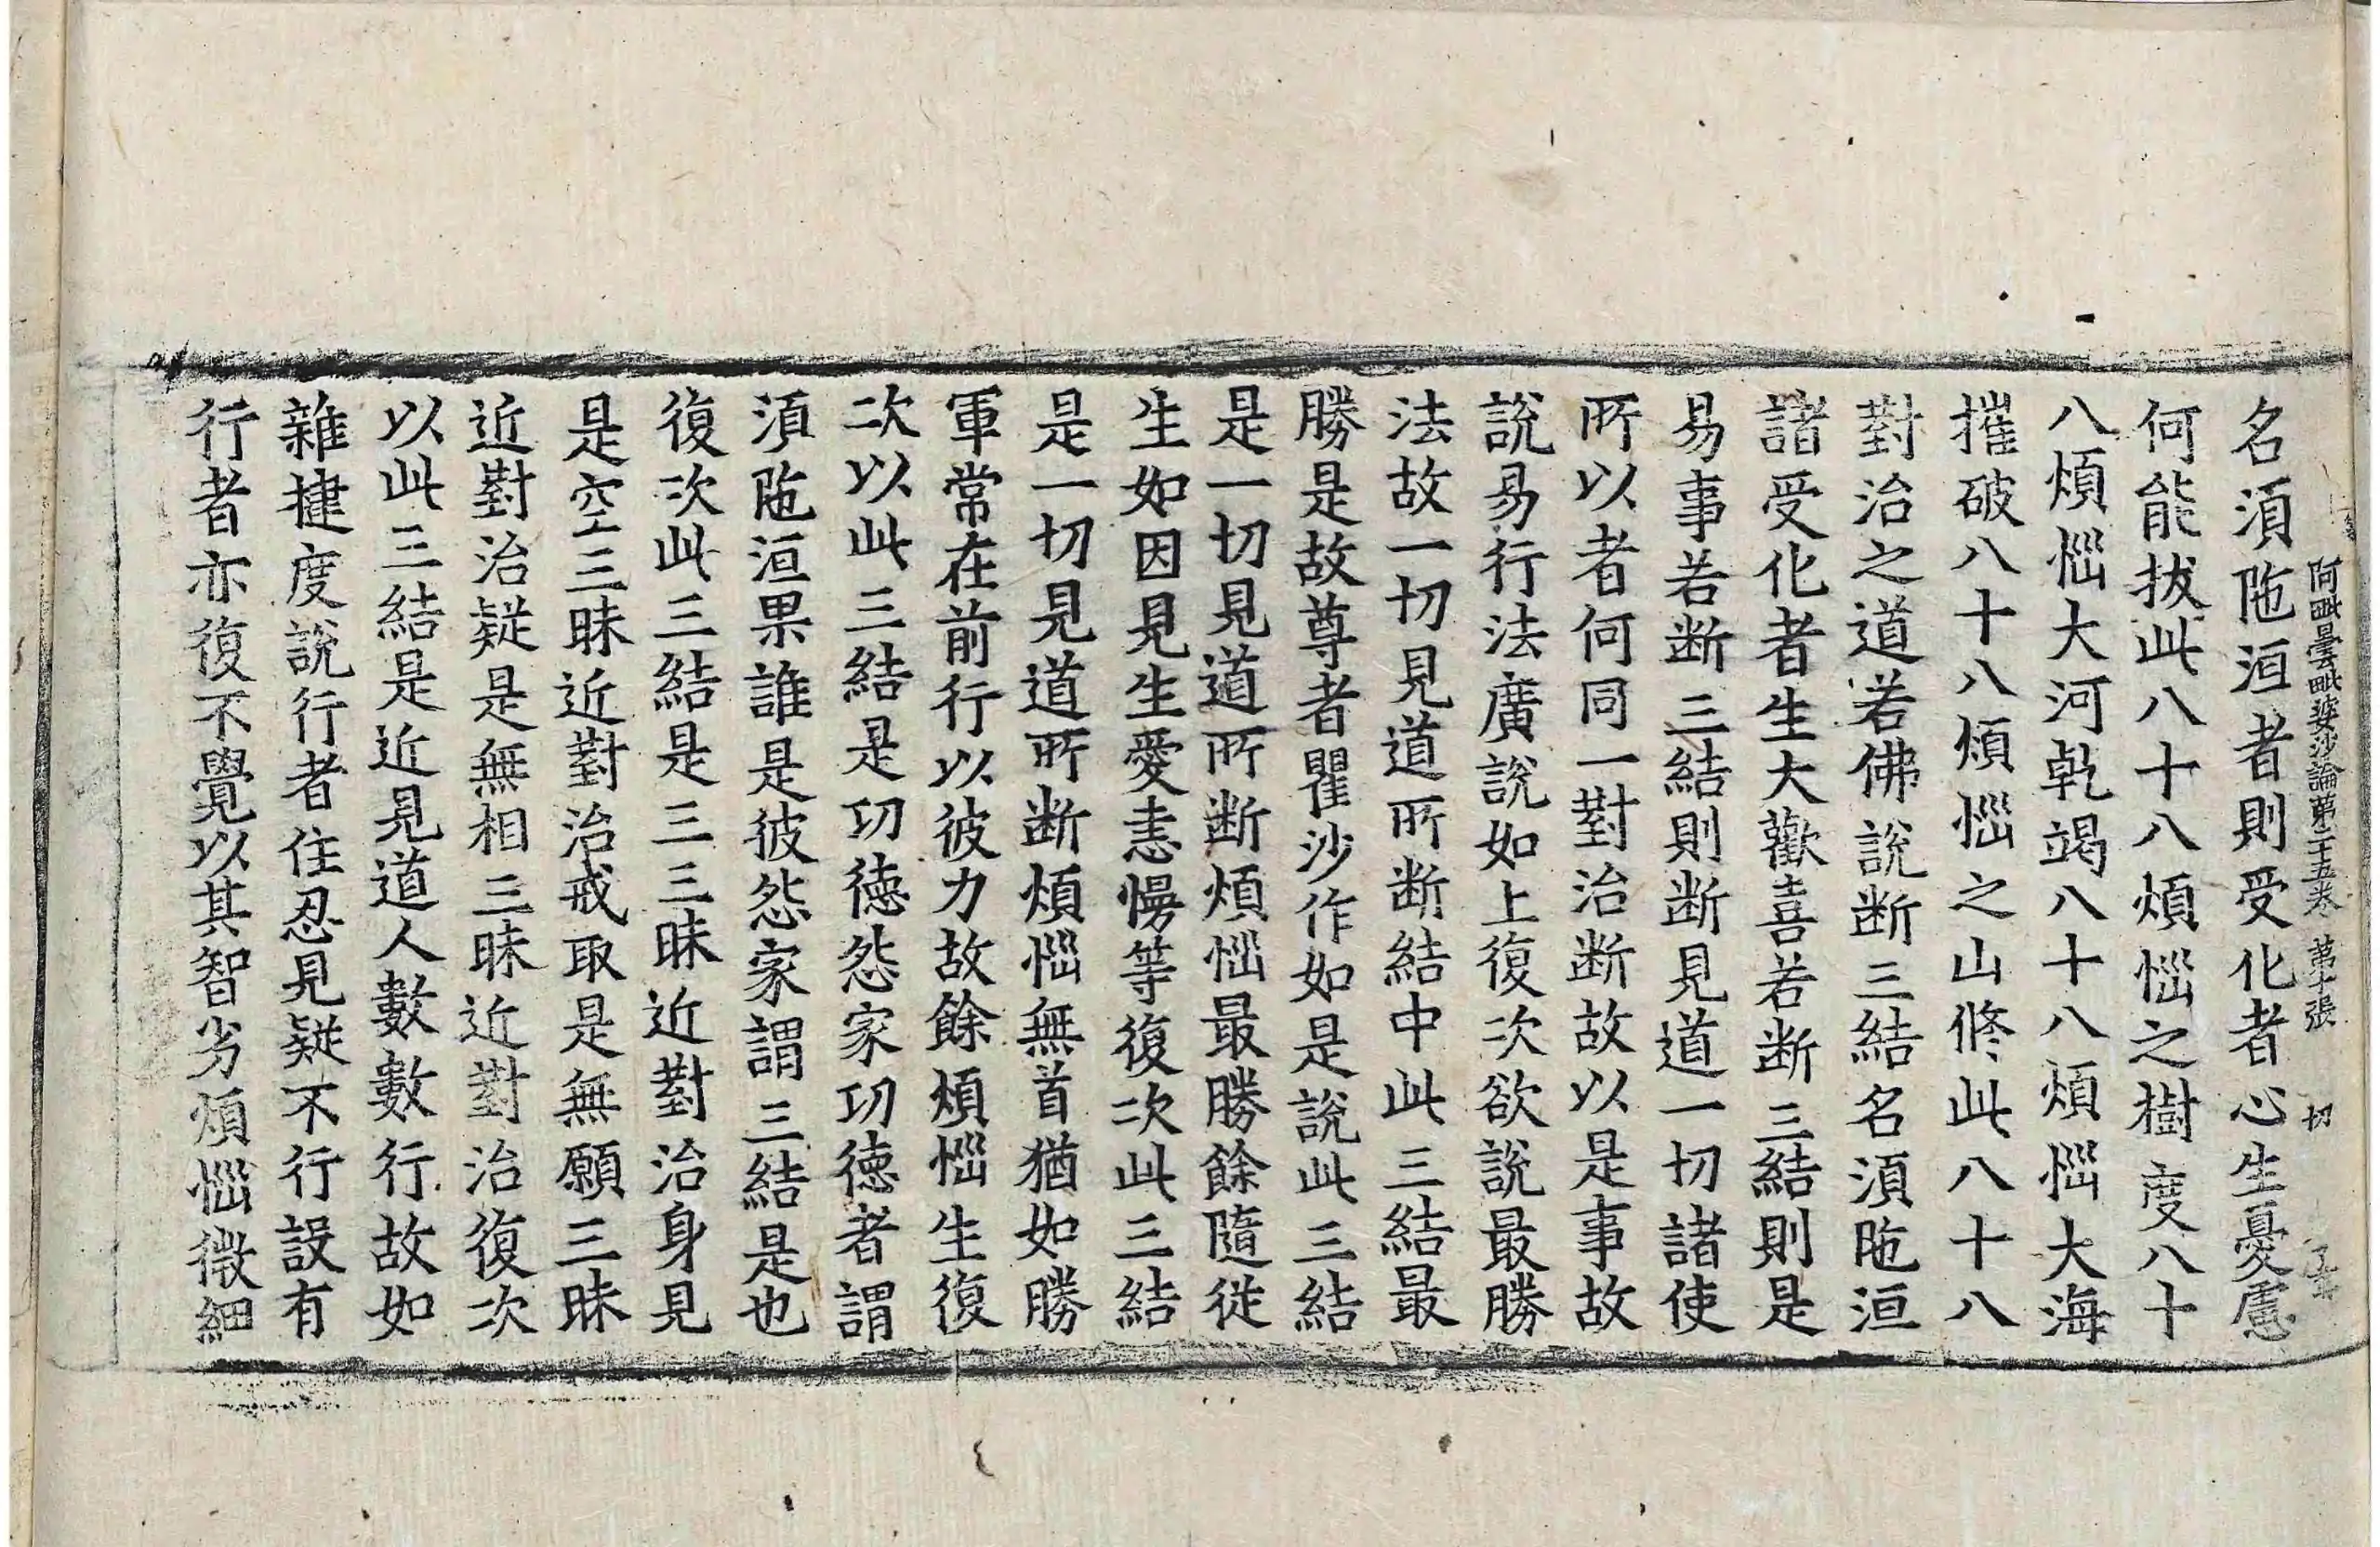 阿毗曇毗婆沙論第二十五卷 第十張 切
名湏陁洹者則受化者心生憂慮
何能拔此八十八煩惱之樹度八十
八煩惱大河乾竭八十八煩惱大海
摧破八十八煩惱之山修此八十八
對治之道若佛說断三結名湏陁洹
諸受化者生大歡喜若断三結則是
易事若断三結則断見道一切諸使
所以者何同一對治断故以是事故
說易行法廣說如上復次欲說最勝
法故一切見道所断結中此三結最
勝是故尊者瞿沙作如是說此三結
是一切見道所断煩惱最勝餘隨従
生如因見生愛恚慢等復次此三結
是一切見道所断煩惱無首猶如勝
軍常在前行以彼力故餘煩惱生復
次以此三結是功徳怨家功徳者謂
湏陁洹果誰是彼怨家謂三結是也
復次此三結是三三昧近對治身見
是空三昧近對治戒取是無願三昧
近對治疑是無相三昧近對治復次
以此三結是近見道人數數行故如
雜揵度說行者住忍見疑不行設有
行者亦復不覺以其智劣煩惱微細